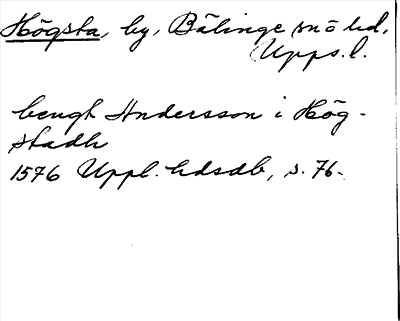 Högsta, by, Bälinge sn o hd,
Upps.l.
bengt Andersson i Hög-
stadh
1576 Uppl. hdsdb, s. 76.